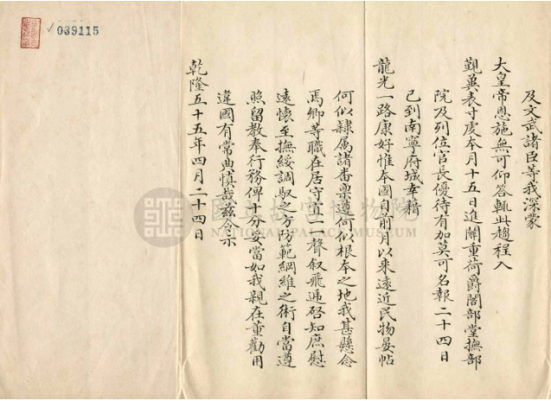 及文武諸臣等我深蒙
大皇帝恩施無可仰答輒此趲程入
覲冀表寸虔本月十五日進關重荷爵閣部堂撫部
院及列位官長優待有加莫可名報二十四日
已到南寧府城幸藉
龍光一路康好惟本國自前月以來遠近民物晏帖
何似隸屬諸番稟遵何似根本之地我甚懸念
焉卿等職在居守宜一聲叙飛遞啓知庶慰
遠懷至撫綏調馭之方防範綱維之術自當遵
照留教奉行務俾十分妥當如我親在董勸用
違國有常典慎哉茲令示
乾隆五十五年四月二十四日
039115
國立故宮博物院
NATIONAL PALACE MUSEUM